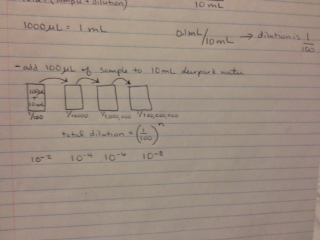 (sample + dilution) 10 mL
1000 µL = 1 mL
0.1 mL/10 mL → dilution is 1/100
- add 100 µL of sample to 10 mL water
100µL
10mL
1/100 1/10000 1/1,000,000 1/100,000,000
total dilution = (1/100)^n
10^-2 10^-4 10^-6 10^-8